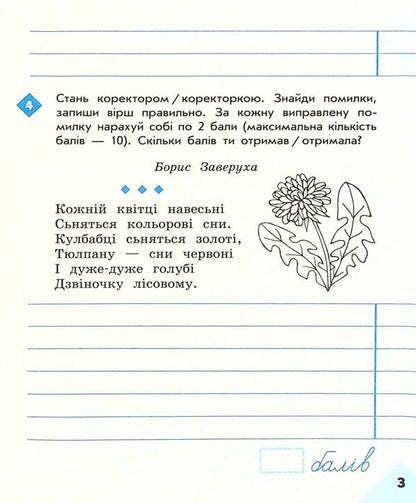 4 Стань коректором / коректоркою. Знайди помилки,
запиши вірш правильно. За кожну виправлену по-
милку нарахуй собі по 2 бали (максимальна кількість
балів — 10). Скільки балів ти отримав / отримала?
Борис Заверуха
Кожній квітці навесьні
Сьняться кольорові сни.
Кулбабці сьняться золоті,
Тюлпану — сни червоні
І дуже-дуже голубі
Дзвіночку лісовому.
балів
3